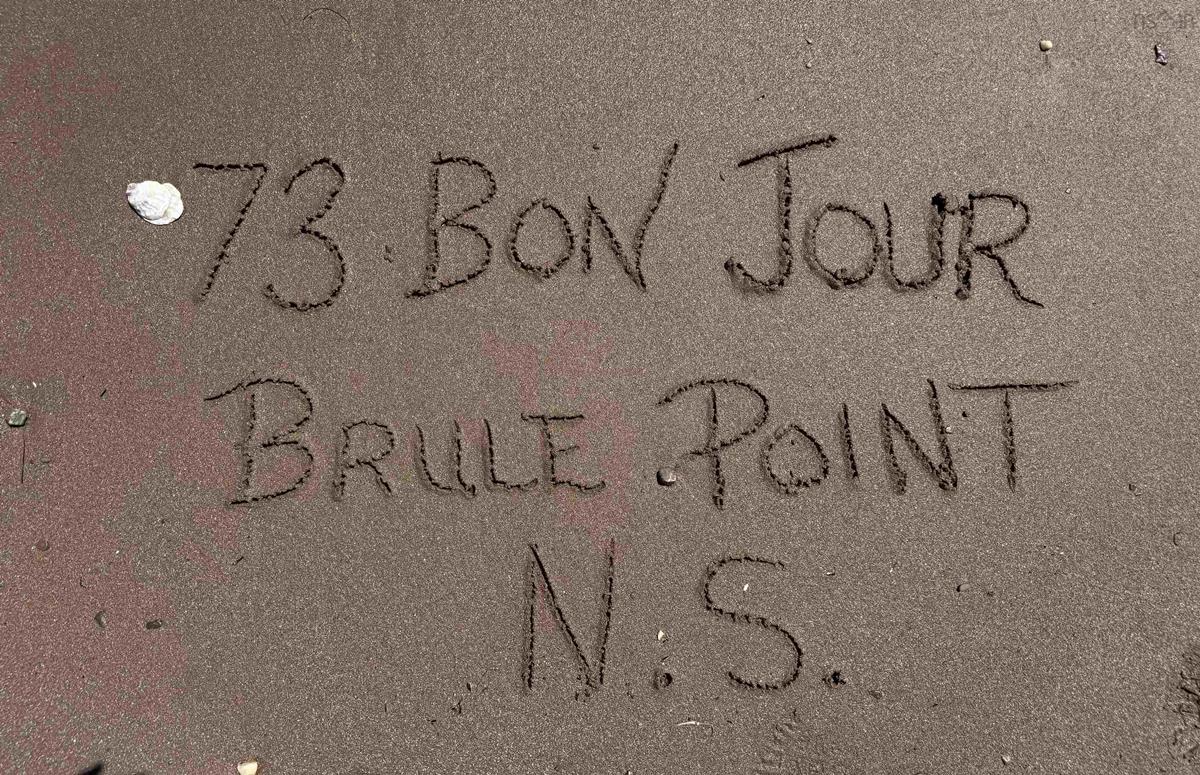 73 BON JOUR
BRULE POINT
N.S.